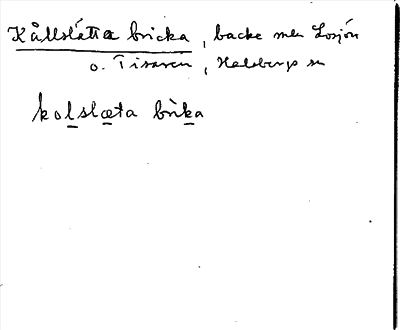 Kållslätta bricka, backe mln Losjön
o. Tisaren, Halsbergs sn
kolslæta brika